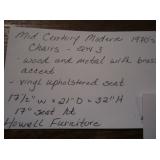 Mid Century Modern 1970's
Chairs - set 3
- wood and metal with brass
accent
- vinyl upholstered seat
17½" w = 21" D = 32" H
17" seat ht
Howell Furniture